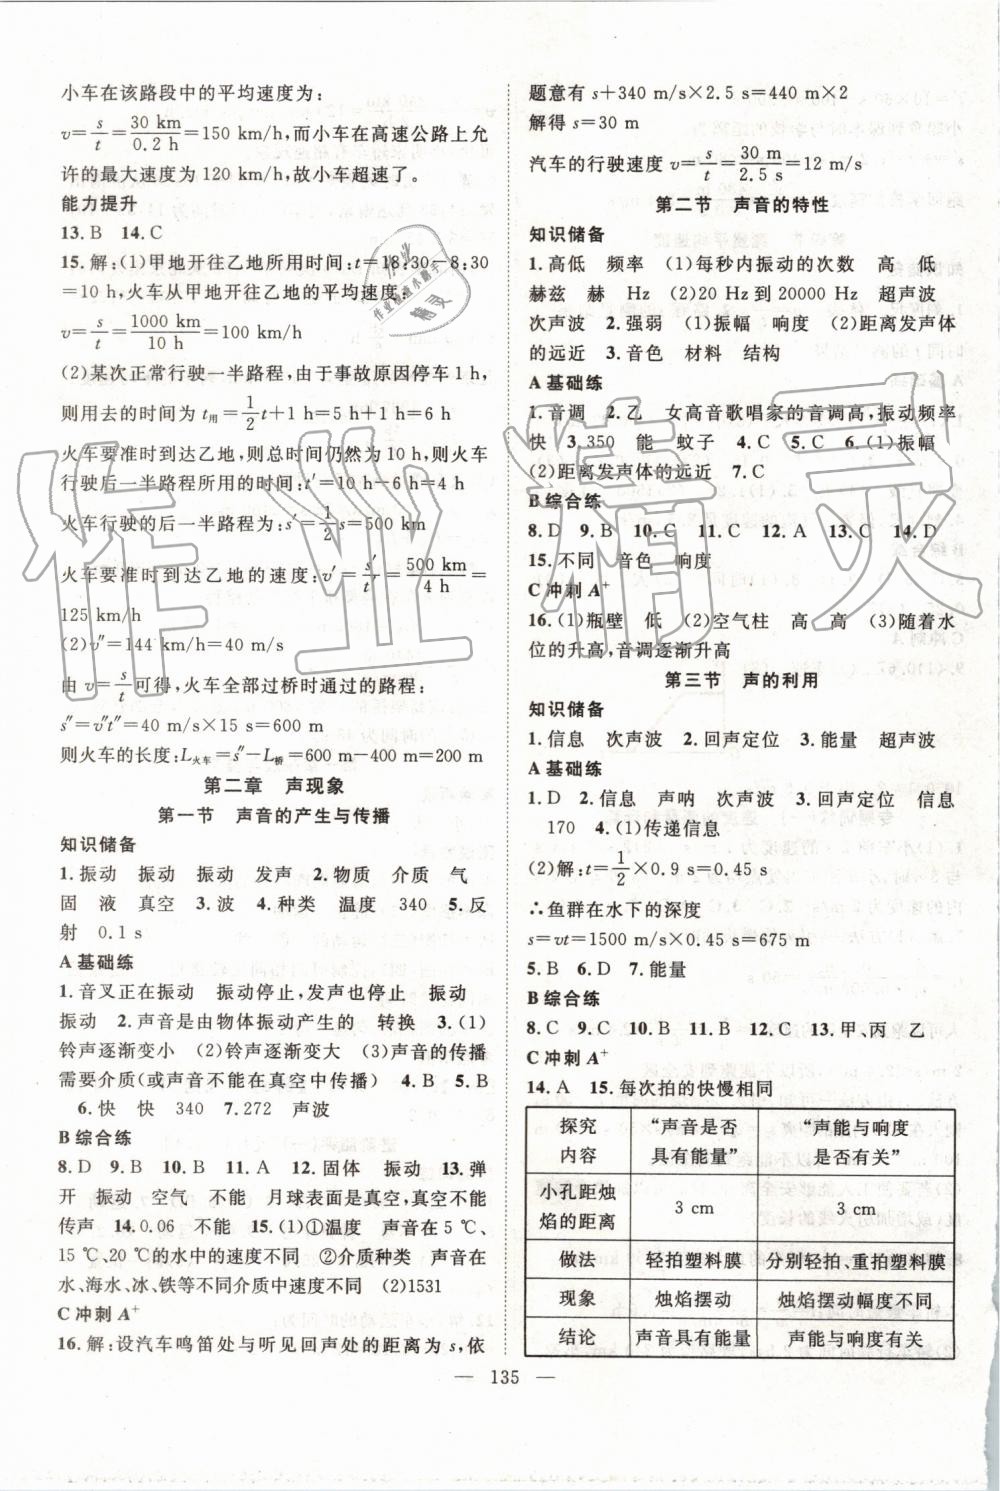 小车在该路段中的平均速度为：
v=s/t=30 km/0.2 h=150 km/h,而小车在高速公路上允
许的最大速度为 120 km/h,故小车超速了。
能力提升
13.B 14.C
15.解:(1)甲地开往乙地所用时间:t=18:30-8:30
=10 h,火车从甲地开往乙地的平均速度:
v=s/t=1000 km/10 h=100 km/h
(2)某次正常行驶一半路程,由于事故原因停车 1 h,
则用去的时间为 t用=1/2t+1 h=5 h+1 h=6 h
火车要准时到达乙地,则总时间仍然为 10 h,则火车
行驶后一半路程所用的时间:t′=10 h-6 h=4 h
火车行驶的后一半路程为:s′=1/2s=500 km
火车要准时到达乙地的速度:v′=s′/t′=500 km/4 h=
125 km/h
(2)v″=144 km/h=40 m/s
由 v=s/t可得,火车全部过桥时通过的路程:
s″=v″t″=40 m/s×15 s=600 m
则火车的长度:L火车=s″-L桥=600 m-400 m=200 m
第二章 声现象
第一节 声音的产生与传播
知识储备
1.振动 振动 振动 发声 2.物质 介质 气
固 液 真空 3.波 4.种类 温度 340 5.反
射 0.1 s
A 基础练
1.音叉正在振动 振动停止,发声也停止 振动
振动 2.声音是由物体振动产生的 转换 3.(1)
铃声逐渐变小 (2)铃声逐渐变大 (3)声音的传播
需要介质(或声音不能在真空中传播) 4.B 5.B
6.快 快 340 7.272 声波
B 综合练
8.D 9.B 10.B 11.B 12.固体 振动 13.弹
开 振动 空气 不能 月球表面是真空,真空不能
传声 14.0.06 不能 15.(1)①温度 声音在 5 ℃、
15 ℃、20 ℃的水中的速度不同 ②介质种类 声音在
水、海水、冰、铁等不同介质中速度不同 (2)1531
C 冲刺 A+
16.解:设汽车鸣笛处与听见回声处的距离为 s,依
题意有 s+340 m/s×2.5 s=440 m×2
解得 s=30 m
汽车的行驶速度 v=s/t=30 m/2.5 s=12 m/s
第二节 声音的特性
知识储备
1.高低 频率 (1)每秒内振动的次数 高 低
赫兹 赫 Hz (2)20 到 20000 Hz 超声波
次声波 2.强弱 (1)振幅 响度 (2)距离发声体
的远近 3.音色 材料 结构
A 基础练
1.音调 2.乙 女高音歌唱家的音调高,振动频率
快 3.350 能 蚊子 4.C 5.C 6.(1)振幅
(2)距离发声体的远近 7.C
B 综合练
8.D 9.B 10.C 11.C 12.A 13.C 14.D
15.不同 音色 响度
C 冲刺 A+
16.(1)瓶壁 低 (2)空气柱 高 高 (3)随着水
位的升高,音调逐渐升高
第三节 声的利用
知识储备
1.信息 次声波 2.回声定位 3.能量 超声波
A 基础练
1.D 2.信息 声呐 次声波 3.回声定位 信息
170 4.(1)传递信息
(2)解:t=1/2×0.9 s=0.45 s
∴鱼群在水下的深度
s=vt=1500 m/s×0.45 s=675 m
5.B 6.D 7.能量
B 综合练
8.C 9.C 10.B 11.B 12.C 13.甲、丙 乙
C 冲刺 A+
14.A 15.每次拍的快慢相同
探究内容 “声音是否具有能量” “声能与响度是否有关”
小孔距烛焰的距离 3 cm 3 cm
做法 轻拍塑料膜 分别轻拍、重拍塑料膜
现象 烛焰摆动 烛焰摆动幅度不同
结论 声音具有能量 声能与响度有关
— 135 —
作业精灵